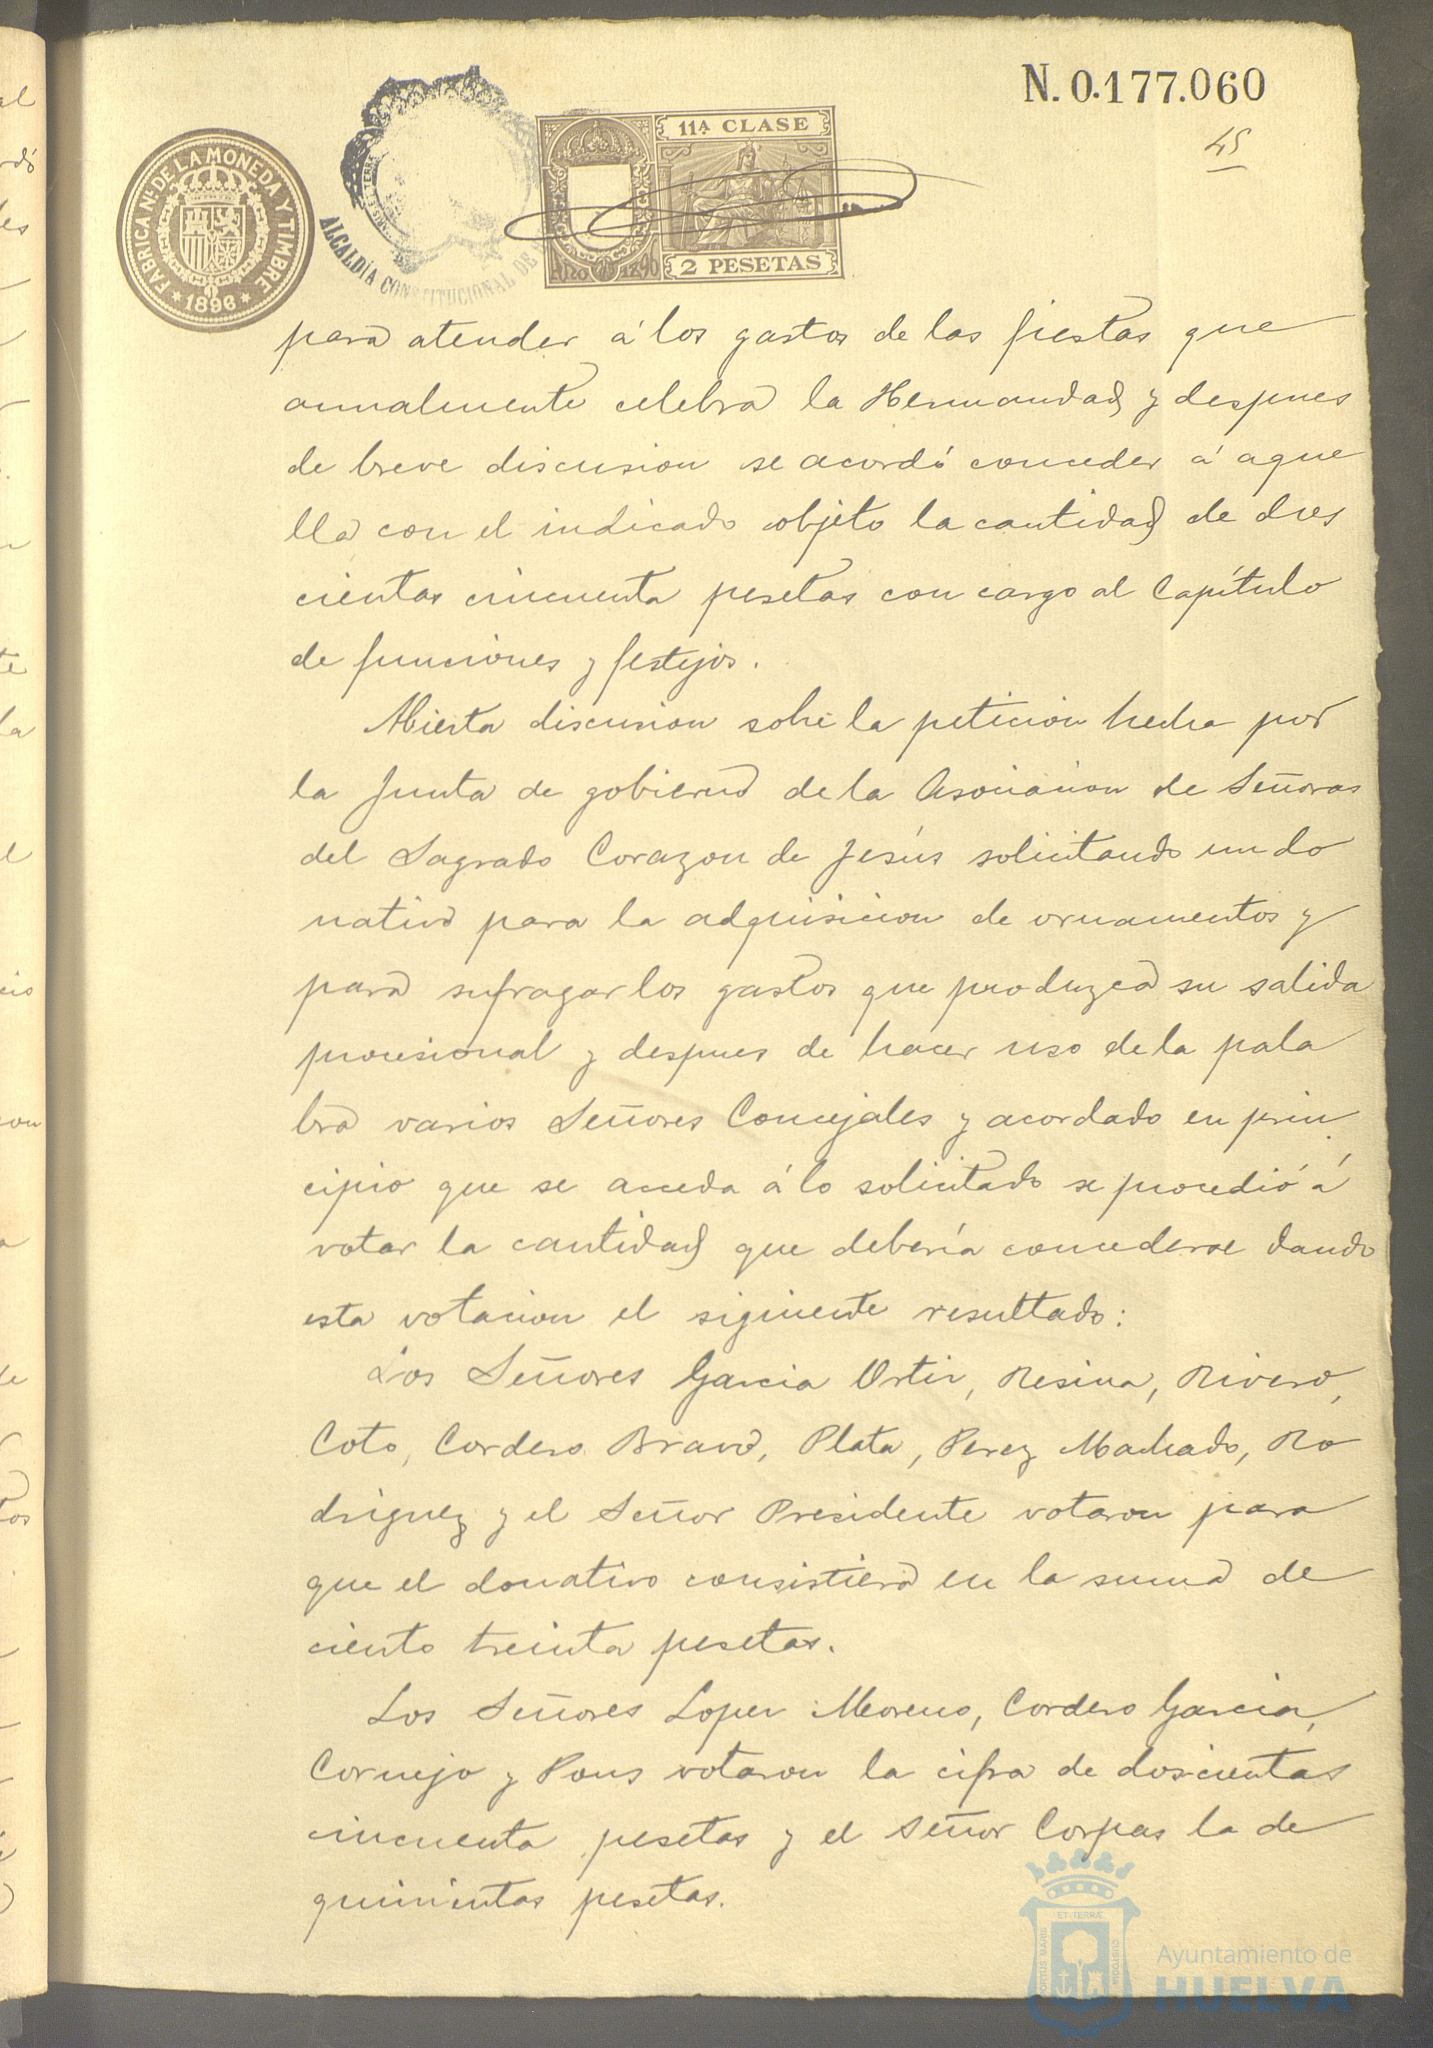 N. 0.177.060
45
FABRICA NL. DE LA MONEDA Y TIMBRE
* 1896 *
ALCALDÍA CONSTITUCIONAL DE
11ª CLASE
AÑO 1896
2 PESETAS
para atender á los gastos de las fiestas que
anualmente celebra la Hermandad y despues
de breve discusion se acordó conceder á aque
lla con el indicado objeto la cantidad de dos
cientas cincuenta pesetas con cargo al Capítulo
de funciones y festejos.
Abierta discusion sobre la peticion hecha por
la Junta de gobierno de la Asociacion de Señoras
del Sagrado Corazon de Jesús solicitando un do
nativo para la adquisicion de ornamentos y
para sufragar los gastos que produzca su salida
procesional y despues de hacer uso de la pala
bra varios Señores Concejales y acordado en prin
cipio que se acceda á lo solicitado se procedió á
votar la cantidad que debería concederse dando
esta votacion el siguiente resultado:
Los Señores Garcia Ortiz, Resina, Rivero,
Coto, Cordero Bravo, Plata, Perez Machado, Ro
driguez y el Señor Presidente votaron para
que el donativo consistiera en la suma de
ciento treinta pesetas.
Los Señores Lopez Moreno, Cordero Garcia,
Cornejo y Pons votaron la cifra de doscientas
cincuenta pesetas y el Señor Corpas la de
quinientas pesetas.
PORTUS MARIS ET TERRÆ CUSTODIA
Ayuntamiento de
HUELVA